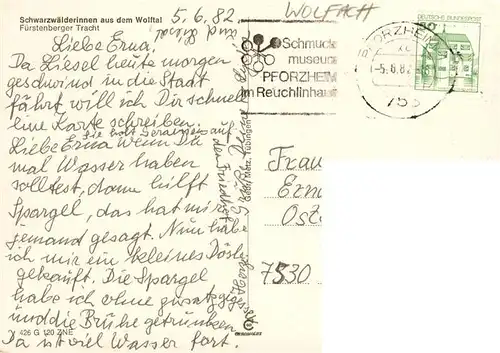 Schwarzwälderinnen aus dem Wolftal
Fürstenberger Tracht
5.6.82
WOLFACH
Liebe Erna,
Da Liesel heute morgen
geschwind in die Stadt
fährt will ich Dir schnell
eine Karte schreiben.
Sie holt Geranien auf
den Friedhof
Liebe Erna wenn Du
mal Wasser haben
solltest, dann hilft
Spargel, das hat mir
jemand gesagt. Nun habe
ich mir ein kleines Dösle
gekauft. Die Spargel
habe ich ohne zusatz gegessen
und die Brühe getrunken.
Da ist viel Wasser fort.
Schmuck
museum
PFORZHEIM
im Reuchlinhaus
PFORZHEIM
-5.6.82
753
DEUTSCHE BUNDESPOST
Frau
Erna
7530
426 G 120 ZNE